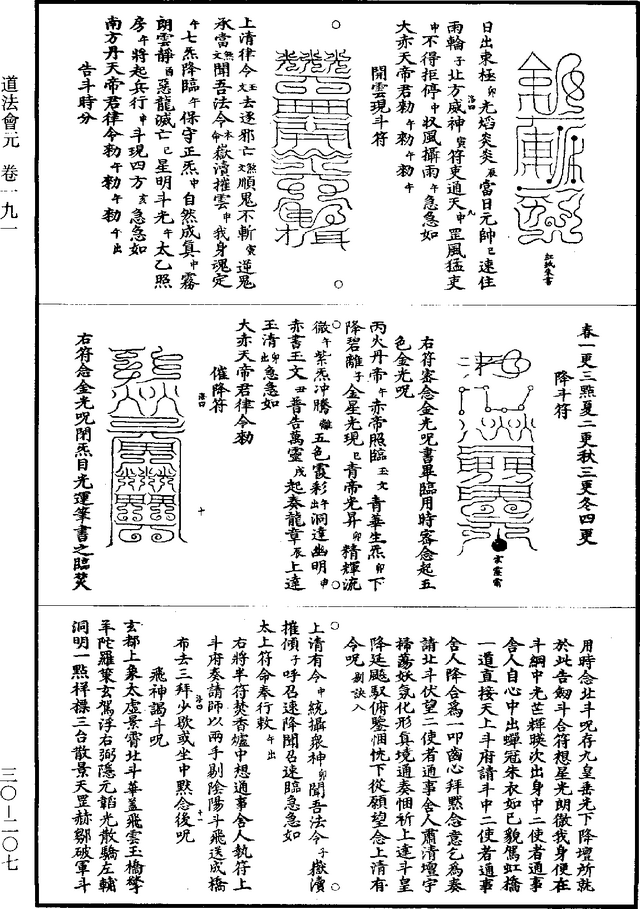 道法會元　卷一九一
三〇—二〇七
日出東極卯光焰炎炎辰當日元帥巳速住
雨輪子北方威神寅符吏通天申罡風猛吏
申不得拒停申收風攝雨午急急如
大赤天帝君勑午勑午勑午
開雲現斗符
紅紙朱書
上清律令玉文去逐邪亡煞文順鬼不斬寅逆鬼
承當無文聞吾法令本命嶽瀆摧雲申我身魂定
午七炁降臨午保守正炁申自然成真申霧
朗雲靜酉惡龍滅亡巳星明斗光午太乙照
房午將起兵行申斗現四方亥急急如
南方丹天帝君律令勑午勑午勑午出
告斗時分
春一更三點夏二更秋三更冬四更
降斗符
右符密念金光呪書畢臨用時密念起五
色金光呪
丙火丹帝午赤帝照臨玉文青華生炁卯下
降碧離子金星光現巳青帝光昇卯精輝流
徹午紫炁冲騰離五色霞彩午出洞達幽明申
赤書玉文丑普告萬靈戌起奏龍章辰上達
玉清卯出急急如
大赤天帝君律令勑
催降符
洛口
右符念金光呪閉炁目光運筆書之臨焚
用時念北斗呪存九皇垂光下降壇所就
於此告劒斗合符想星光朗徹我身便在
斗綱中光芒輝暎次出身中二使者通事
舍人自心中出蟬冠朱衣如已貌駕虹橋
一道直接天上斗府請斗中二使者通事
舍人降合為一叩齒心拜默念意乞為奏
請北斗伏望二使者通事舍人肅清壇宇
掃蕩妖氛化形真境通奏悃祈上達斗皇
降廷飈馭俯鑒悃忱下從願望念上清有
令呪剔訣入
上清有令中統攝衆神卯聞吾法令子嶽瀆
摧傾子呼召速降聞召速臨急急如
太上符命奉行敕午出
右將半符焚香爐中想通事舍人執符上
斗府奏請師以兩手剔陰陽斗飛送成橋
布去三拜少歇或坐中默念後呪
飛神謁斗呪
玄都上象太虛景霄北斗華蓋飛雲玉橋擎
羊陀羅策玄駕浮右弼隱元韜光散驕左輔
洞明一點祥標三台散景天罡赫鄒破軍斗